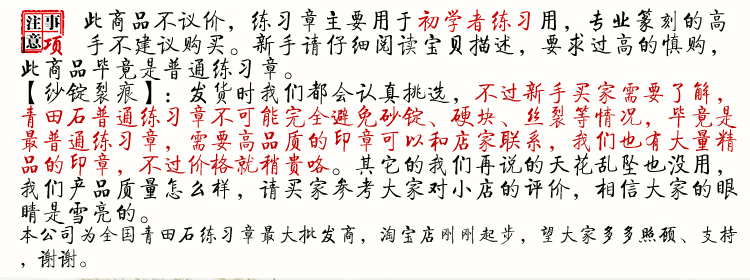 注意事项
此商品不议价，练习章主要用于初学者练习用，专业篆刻的高
手不建议购买。新手请仔细阅读宝贝描述，要求过高的慎购，
此商品毕竟是普通练习章。
【纱锭裂痕】：发货时我们都会认真挑选，不过新手买家需要了解，
青田石普通练习章不可能完全避免砂锭、硬块、丝裂等情况，毕竟是
最普通练习章，需要高品质的印章可以和店家联系，我们也有大量精
品的印章，不过价格就稍贵咯。其它的我们再说的天花乱坠也没用，
我们产品质量怎么样，请买家参考大家对小店的评价，相信大家的眼
睛是雪亮的。
本公司为全国青田石练习章最大批发商，淘宝店刚刚起步，望大家多多照顾、支持
，谢谢。